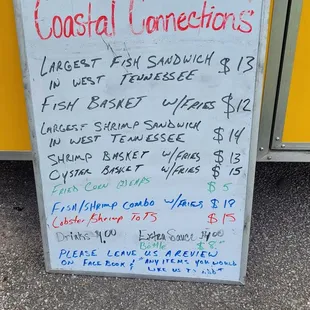 Coastal Connections
LARGEST FISH SANDWICH $13
IN WEST TENNESSEE
FISH BASKET W/FRIES $12
LARGEST SHRIMP SANDWICH $14
IN WEST TENNESSEE
SHRIMP BASKET W/FRIES $13
OYSTER BASKET W/FRIES $15
FRIED CORN $5
FISH/SHRIMP COMBO W/FRIES $18
Lobster/Shrimp TOTS $15
Drinks Extra Sauce
Bottle $8
PLEASE LEAVE US A REVIEW
ON FACEBOOK & ANY ITEMS YOU WOULD
LIKE US TO